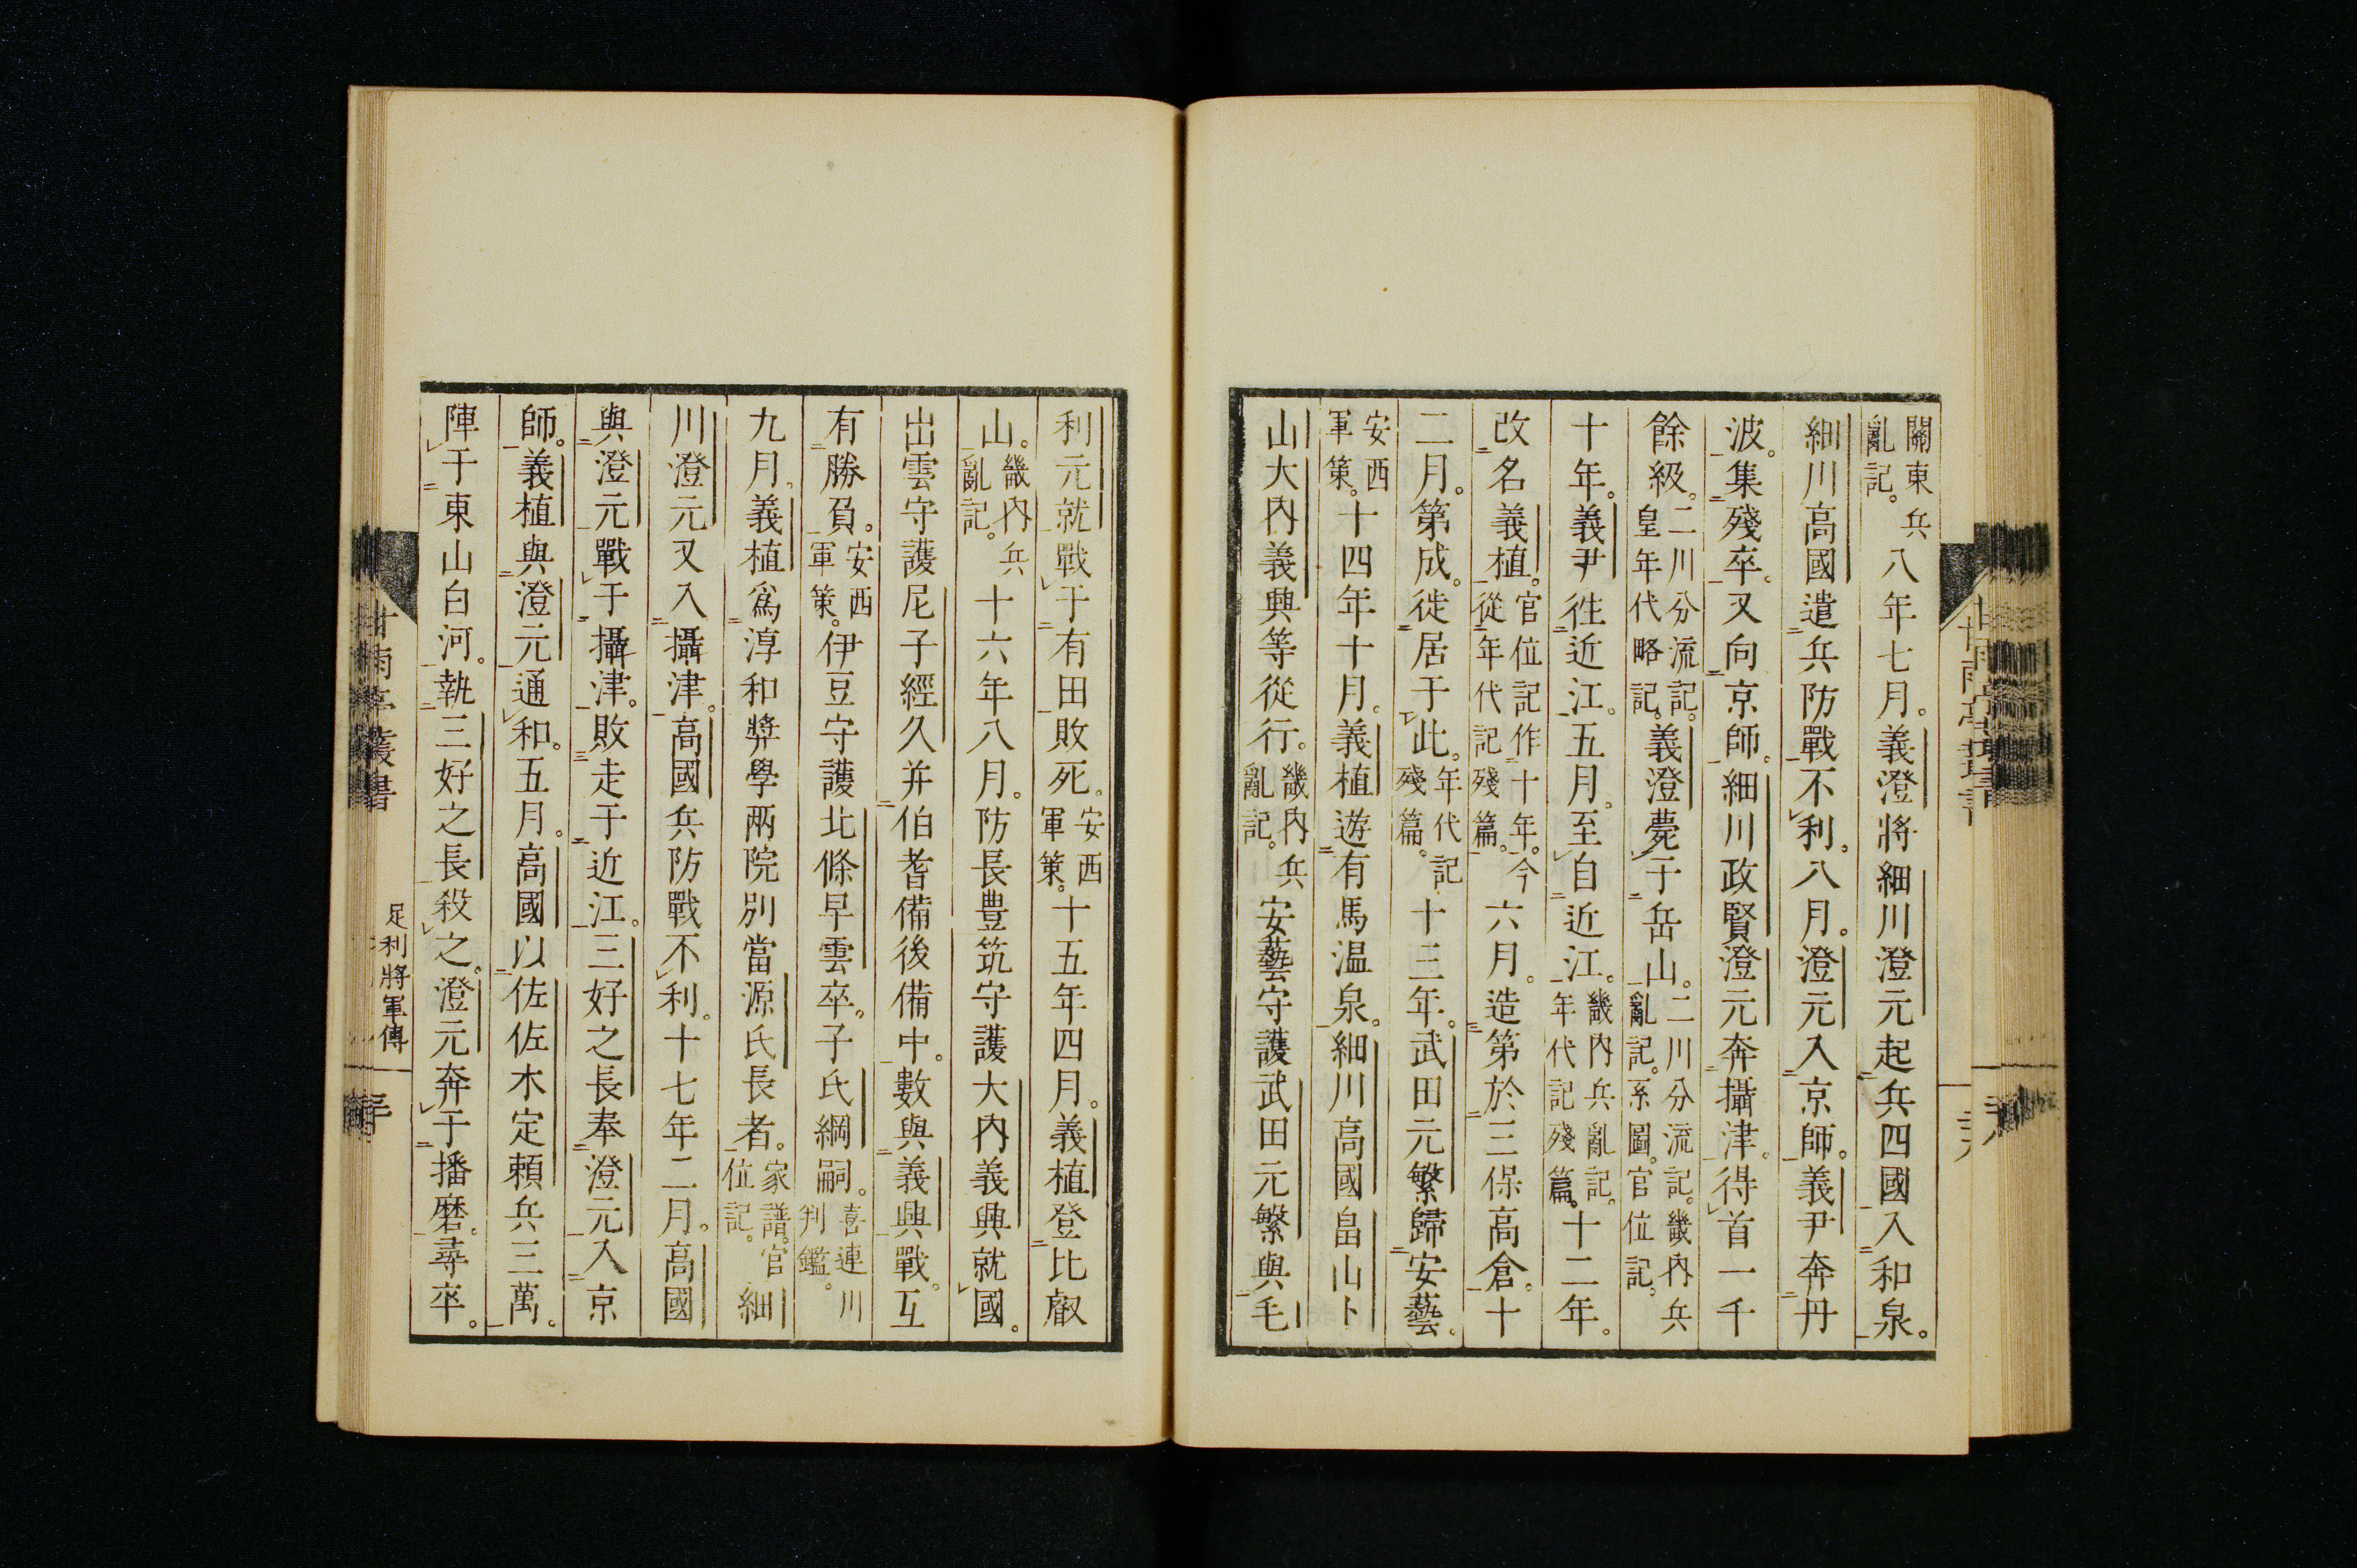 關東兵亂記。八年七月。義澄將細川澄元起兵四國入和泉。
細川高國遣兵防戰不利。八月。澄元入京師。義尹奔丹
波。集殘卒。又向京師。細川政賢澄元奔攝津。得首一千
餘級。二川分流記。皇年代略記。義澄薨于岳山。二川分流記。畿內兵亂記。系圖。官位記。
十年。義尹往近江。五月。至自近江。畿內兵亂記。年代記殘篇。十二年。
改名義植。官位記作十年。今從年代記殘篇。六月。造第於三保高倉。十
二月。第成。徙居于此。年代記殘篇。十三年。武田元繁歸安藝。
安西軍策。十四年十月。義植遊有馬温泉。細川高國畠山卜
山大內義興等從行。畿內兵亂記。安藝守護武田元繁與毛
利元就戰于有田敗死。安西軍策。十五年四月。義植登比叡
山。畿內兵亂記。十六年八月。防長豊筑守護大內義興就國。
出雲守護尼子經久并伯耆備後備中。數與義興戰。互
有勝負。安西軍策。伊豆守護北條早雲卒。子氏綱嗣。喜連川判鑑。
九月。義植爲淳和弉學兩院別當源氏長者。家譜。官位記。細
川澄元又入攝津。高國兵防戰不利。十七年二月。高國
與澄元戰于攝津。敗走于近江。三好之長奉澄元入京
師。義植與澄元通和。五月。高國以佐佐木定頼兵三萬。
陣于東山白河。執三好之長殺之。澄元奔于播磨。尋卒。
甘雨亭叢書
足利將軍傳